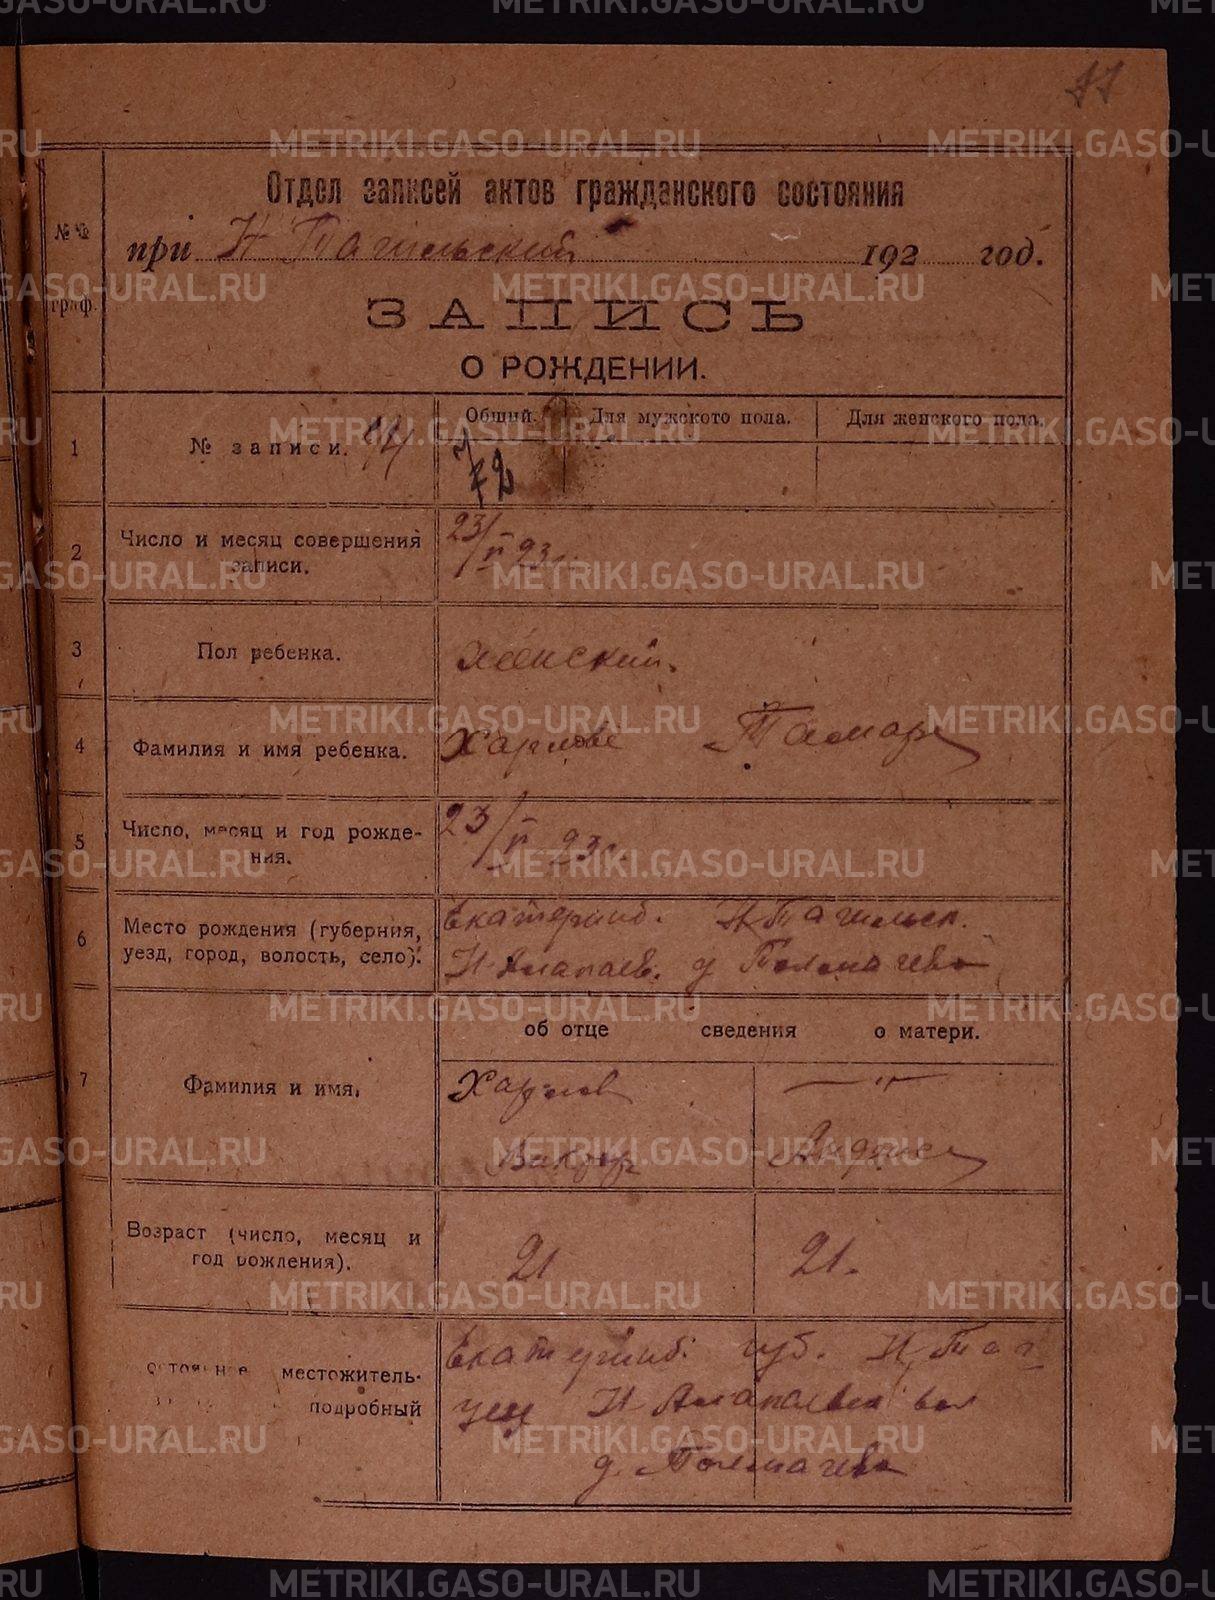 77
Отдел записей актов гражданского состояния
№№ граф.
при Н Тагильский 192 год.
ЗАПИСЬ
О РОЖДЕНИИ.
1 № записи.
Общий. Для мужского пола. Для женского пола.
72
2 Число и месяц совершения записи.
23/II 23 г.
3 Пол ребенка.
женский.
4 Фамилия и имя ребенка.
Харлова Тамара
5 Число, месяц и год рождения.
23/II 23 г.
6 Место рождения (губерния, уезд, город, волость, село).
Екатеринб. Н Тагильск.
Н-Алапаев. д Толмачева
об отце сведения о матери.
7 Фамилия и имя.
Харлов — " —
Виктор
Возраст (число, месяц и год рождения).
21 21.
местожитель-
подробный
Екатеринб. губ. Н Таг
уезд Н Алапаевск вол
д. Толмачева
METRIKI.GASO-URAL.RU